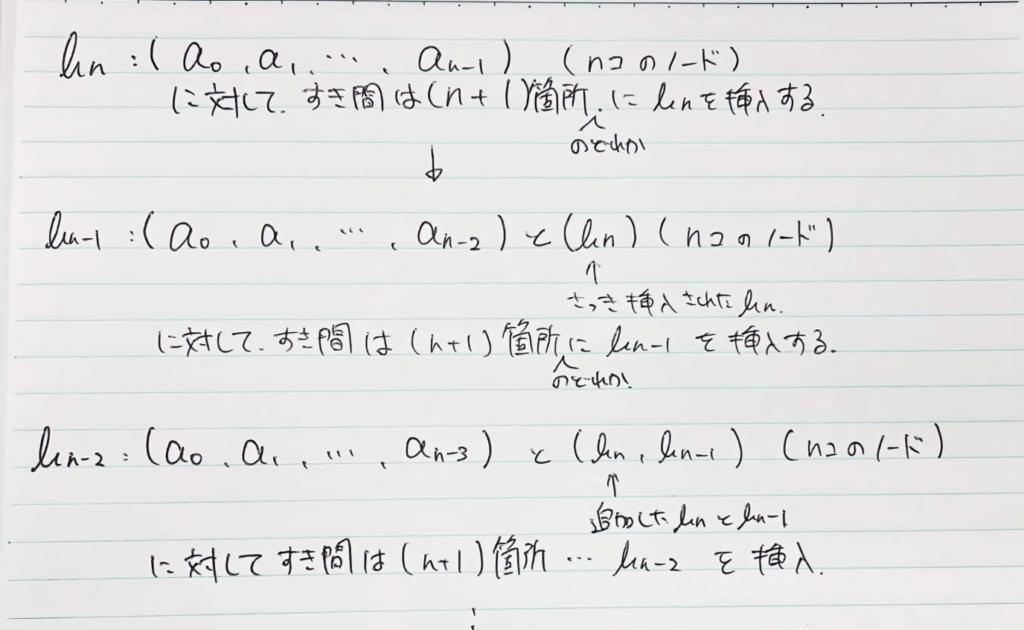 ln : (a₀, a₁, …, aₙ₋₁) (nコのノード)
に対して、すき間は(n+1)箇所、に lnを挿入する。
のどれか
↓
ln-1 : (a₀, a₁, …, aₙ₋₂) と (ln) (nコのノード)
↑
さっき挿入された ln.
に対して、すき間は (n+1) 箇所に ln-1 を挿入する。
のどれか
ln-2 : (a₀, a₁, …, aₙ₋₃) と (ln, ln-1) (nコのノード)
↑
追加した ln と ln-1
に対して すき間は (n+1) 箇所 … ln-2 を 挿入.
⋮